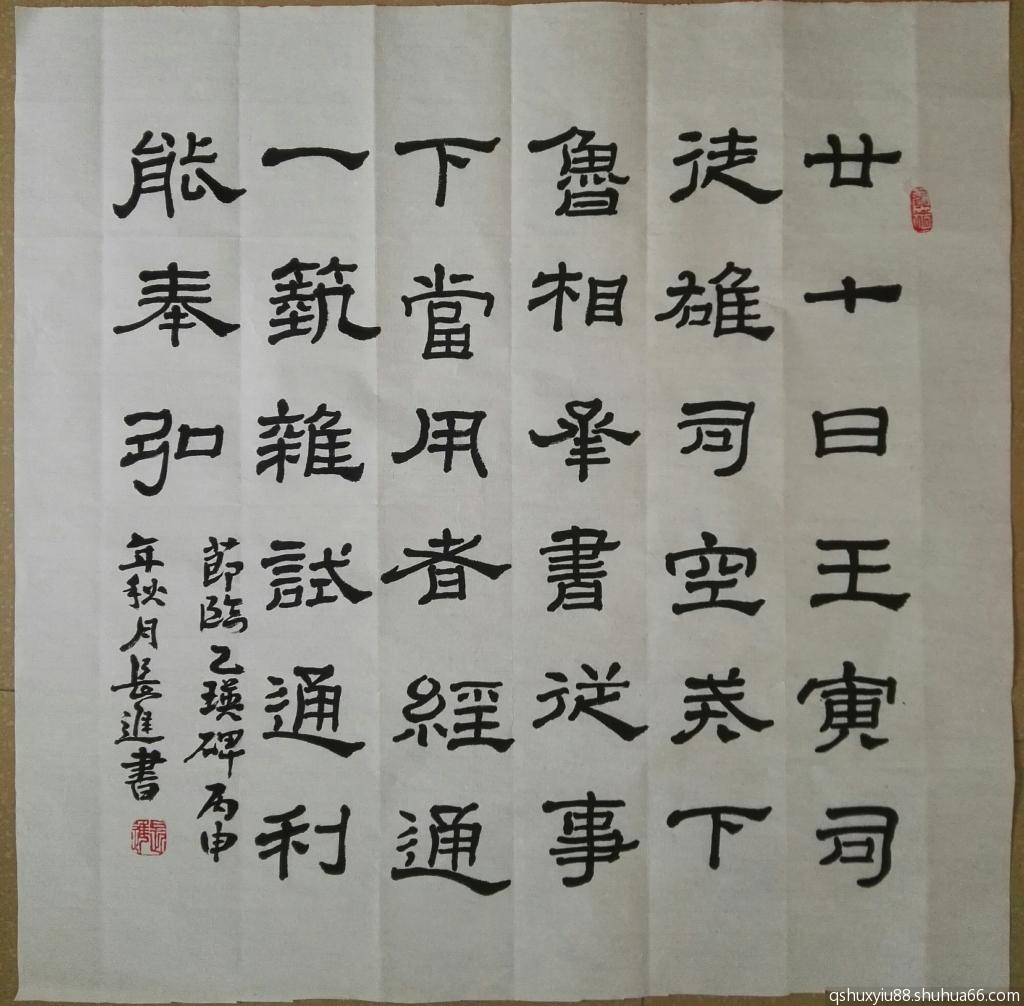 廿七日壬寅司
徒雄司空戒下
魯相承書從事
下當用者經通
一蓺雜試通利
能奉弘
節臨乙瑛碑丙申
年秋月長進書
qshuxyiu88.shuhua66.com